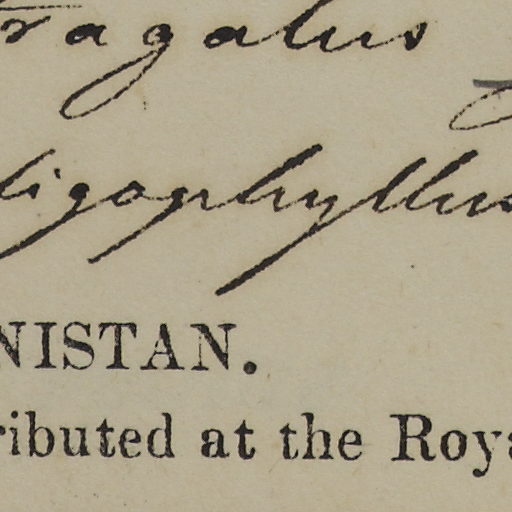 tragalus
ligophyllus
NISTAN.
ributed at the Roya